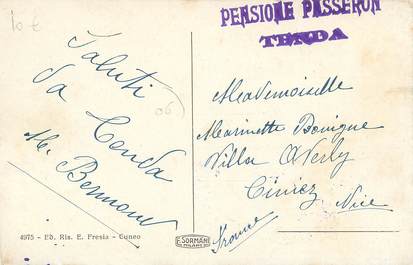 10 €
PENSIONE PASSERON
TENDA
06
Saluti
da Tenda
M. Bermond
Mademoiselle
Marinette Bonigue
Villa Averly
Cimiez
Nice
France
4975 - Ed. Ris. E. Fresia - Cuneo
E. SORMANI
MILANO